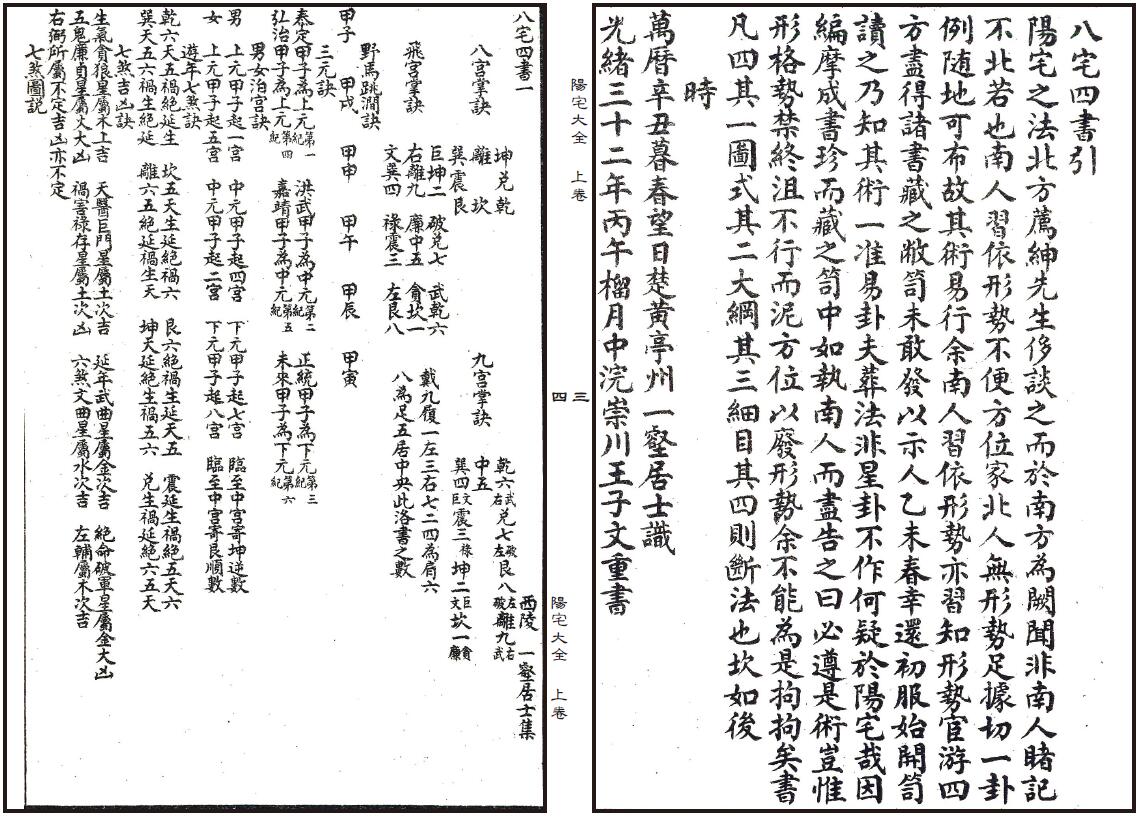 八宅四書引
陽宅之法北方薦紳先生侈談之而於南方為闕聞非南人睹記
不北若也南人習依形勢不便方位家北人無形勢足據切一卦
例随地可布故其術易行余南人習依形勢亦習知形勢宦游四
方盡得諸書藏之敝笥未敢發以示人乙未春幸還初服始開笥
讀之乃知其術一准易卦夫葬法非星卦不作何疑於陽宅哉因
編摩成書珍而藏之笥中如執南人而盡告之曰必遵是術豈惟
形格勢禁終沮不行而泥方位以廢形勢余不能為是拘拘矣書
凡四其一圖式其二大綱其三細目其四則斷法也坎如後
時
萬曆辛丑暮春望日楚黃亭州一壑居士識
光緒三十二年丙午榴月中浣崇川王子文重書
陽宅大全 上卷
三
四
陽宅大全 上卷
八宅四書一
西陵 一壑居士集
八宮掌訣
坤兌乾
離 坎
巽震艮
九宮掌訣
乾六武右 兌七破左 艮八左破 離九右武
中五
巽四文巨 震三祿 坤二巨文 坎一貪廉
飛宮掌訣
巨坤二 破兌七 武乾六
右離九 廉中五 貪坎一
文巽四 祿震三 左艮八
戴九履一左三右七二四為肩六
八為足五居中央此洛書之數
野馬跳澗訣
甲子 甲戌 甲申 甲午 甲辰 甲寅
三元訣
泰定甲子為上元第一紀 洪武甲子為中元第二紀 正統甲子為下元第三紀
弘治甲子為上元第四紀 嘉靖甲子為中元第五紀 未來甲子為下元第六紀
男女治宮訣
男 上元甲子起一宮 中元甲子起四宮 下元甲子起七宮 臨至中宮寄坤逆數
女 上元甲子起五宮 中元甲子起二宮 下元甲子起八宮 臨至中宮寄艮順數
遊年七煞訣
乾六天五禍絕延生 坎五天生延絕禍六 艮六絕禍生延天五 震延生禍絕五天六
巽天五六禍生絕延 離六五絕延禍生天 坤天延絕生禍五六 兌生禍延絕六五天
七煞吉凶訣
生氣貪狼星屬木上吉 天醫巨門星屬土次吉 延年武曲星屬金次吉 絕命破軍星屬金大凶
五鬼廉貞星屬火大凶 禍害祿存星屬土次凶 六煞文曲星屬水次吉 左輔屬木次吉
右弼所屬不定吉凶亦不定
七煞圖説